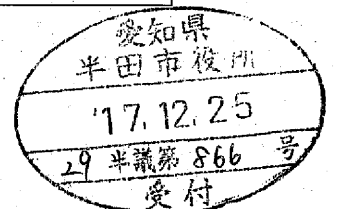 愛知県
半田市役所
'17.12.25
29 半議第 866 号
受付